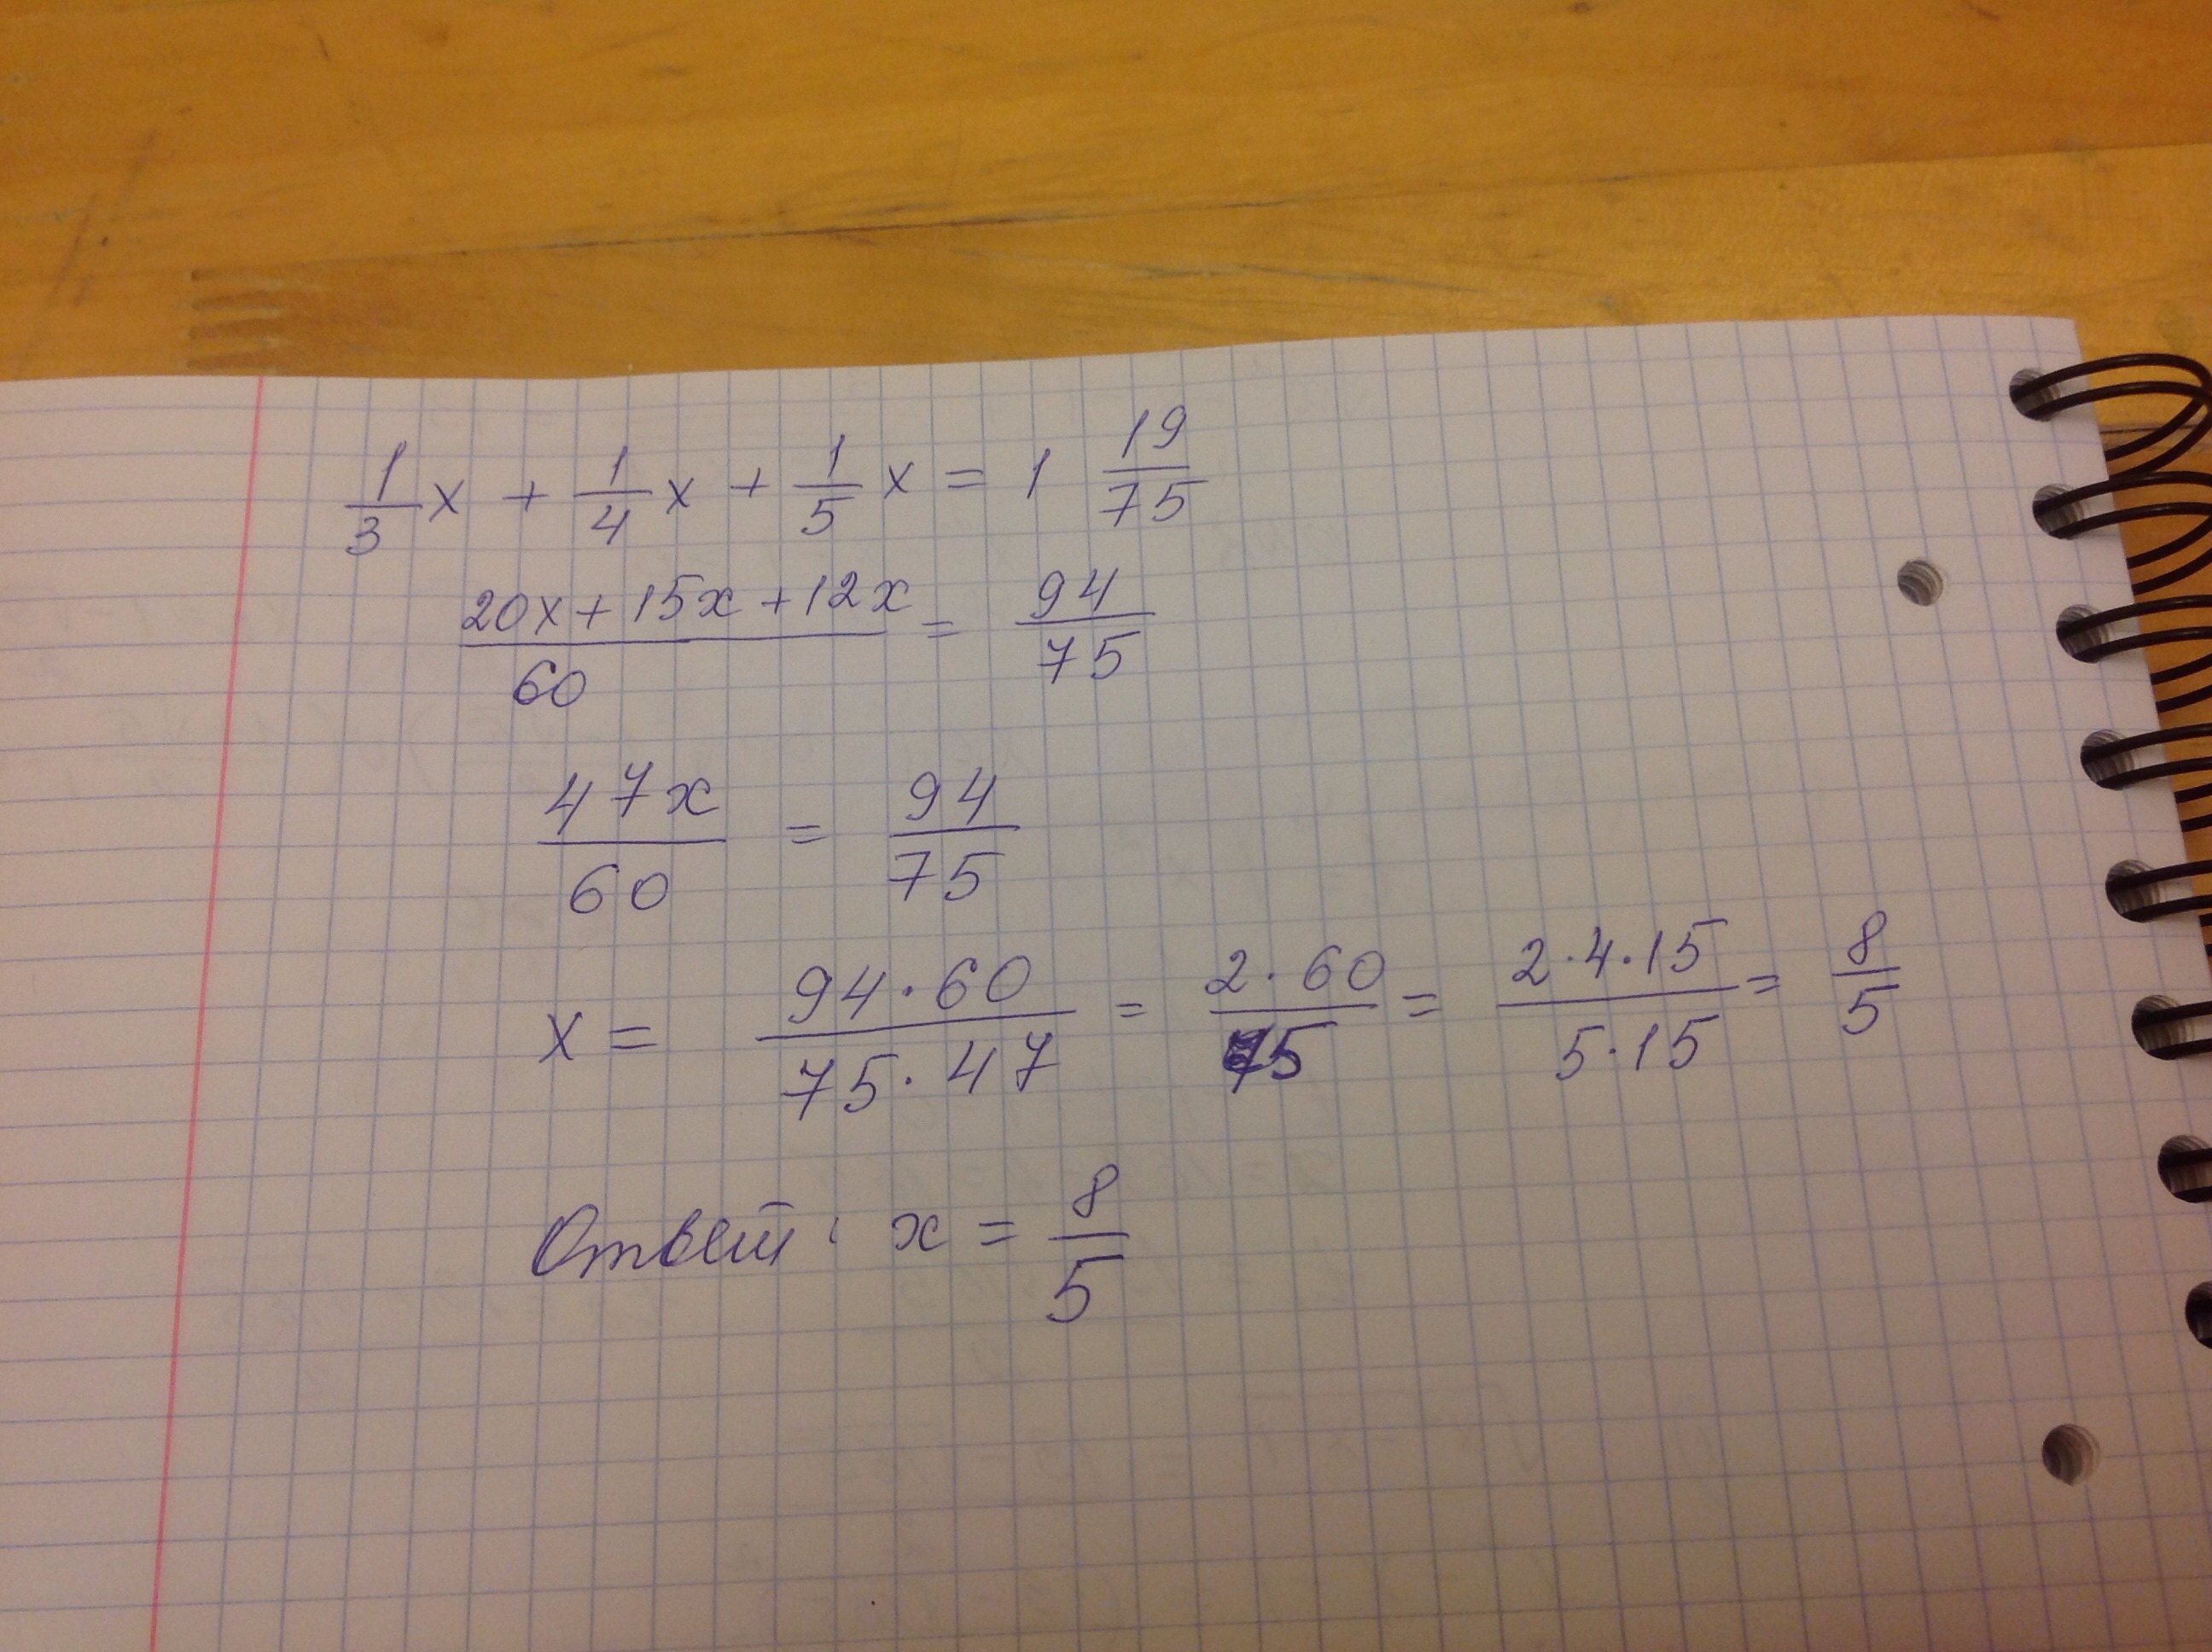 1/3 x + 1/4 x + 1/5 x = 1 19/75
20x + 15x + 12x / 60 = 94/75
47x/60 = 94/75
x = 94·60 / 75·47 = 2·60 / 75 = 2·4·15 / 5·15 = 8/5
Ответ: x = 8/5